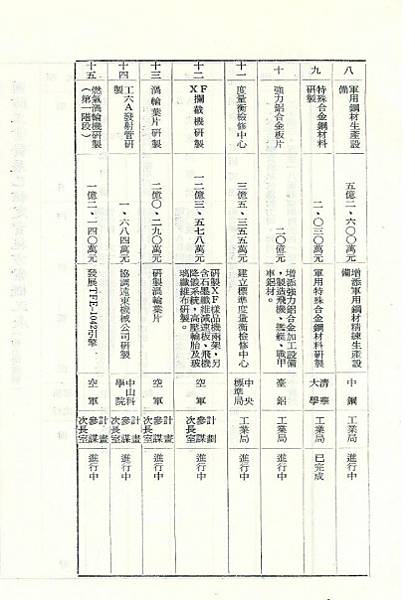 八
軍用鋼材生產設
備
五億二、六〇〇萬元
增添軍用鋼材精煉生產設
備
中鋼
工業局
進行中
九
特殊合金鋼材料
研製
二、〇三〇萬元
軍用特殊合金鋼材料研製
清華
大學
工業局
已完成
十
強力鋁合金板片
二〇億元
增添強力鋁合金加工設備
，製造飛機、艦艇、戰甲
車鋁材。
臺鋁
工業局
進行中
十一
度量衡檢修中心
三億五、三五五萬元
建立標準度量衡檢修中心
中央
標準局
工業局
進行中
十二
XF攔截機研製
一二億三、五七八萬元
研製XF樣品機兩架，另
含石墨纖維減速板、飛機
降緩系統，高壓輪胎及玻
璃纖維布研製。
空軍
計劃
參謀
次長室
進行中
十三
渦輪葉片研製
二億〇、二九〇萬元
研製渦輪葉片
空軍
計畫
參謀
次長室
進行中
十四
工六A發射管研
製
一、六八四萬元
協調遠東機械公司研製
中山科
學院
計畫
參謀
次長室
進行中
十五
燃氣渦輪機研製
（第一階段）
一億二、一四〇萬元
發展TFE-1042引擎．
空軍
計畫
參謀
次長室
進行中